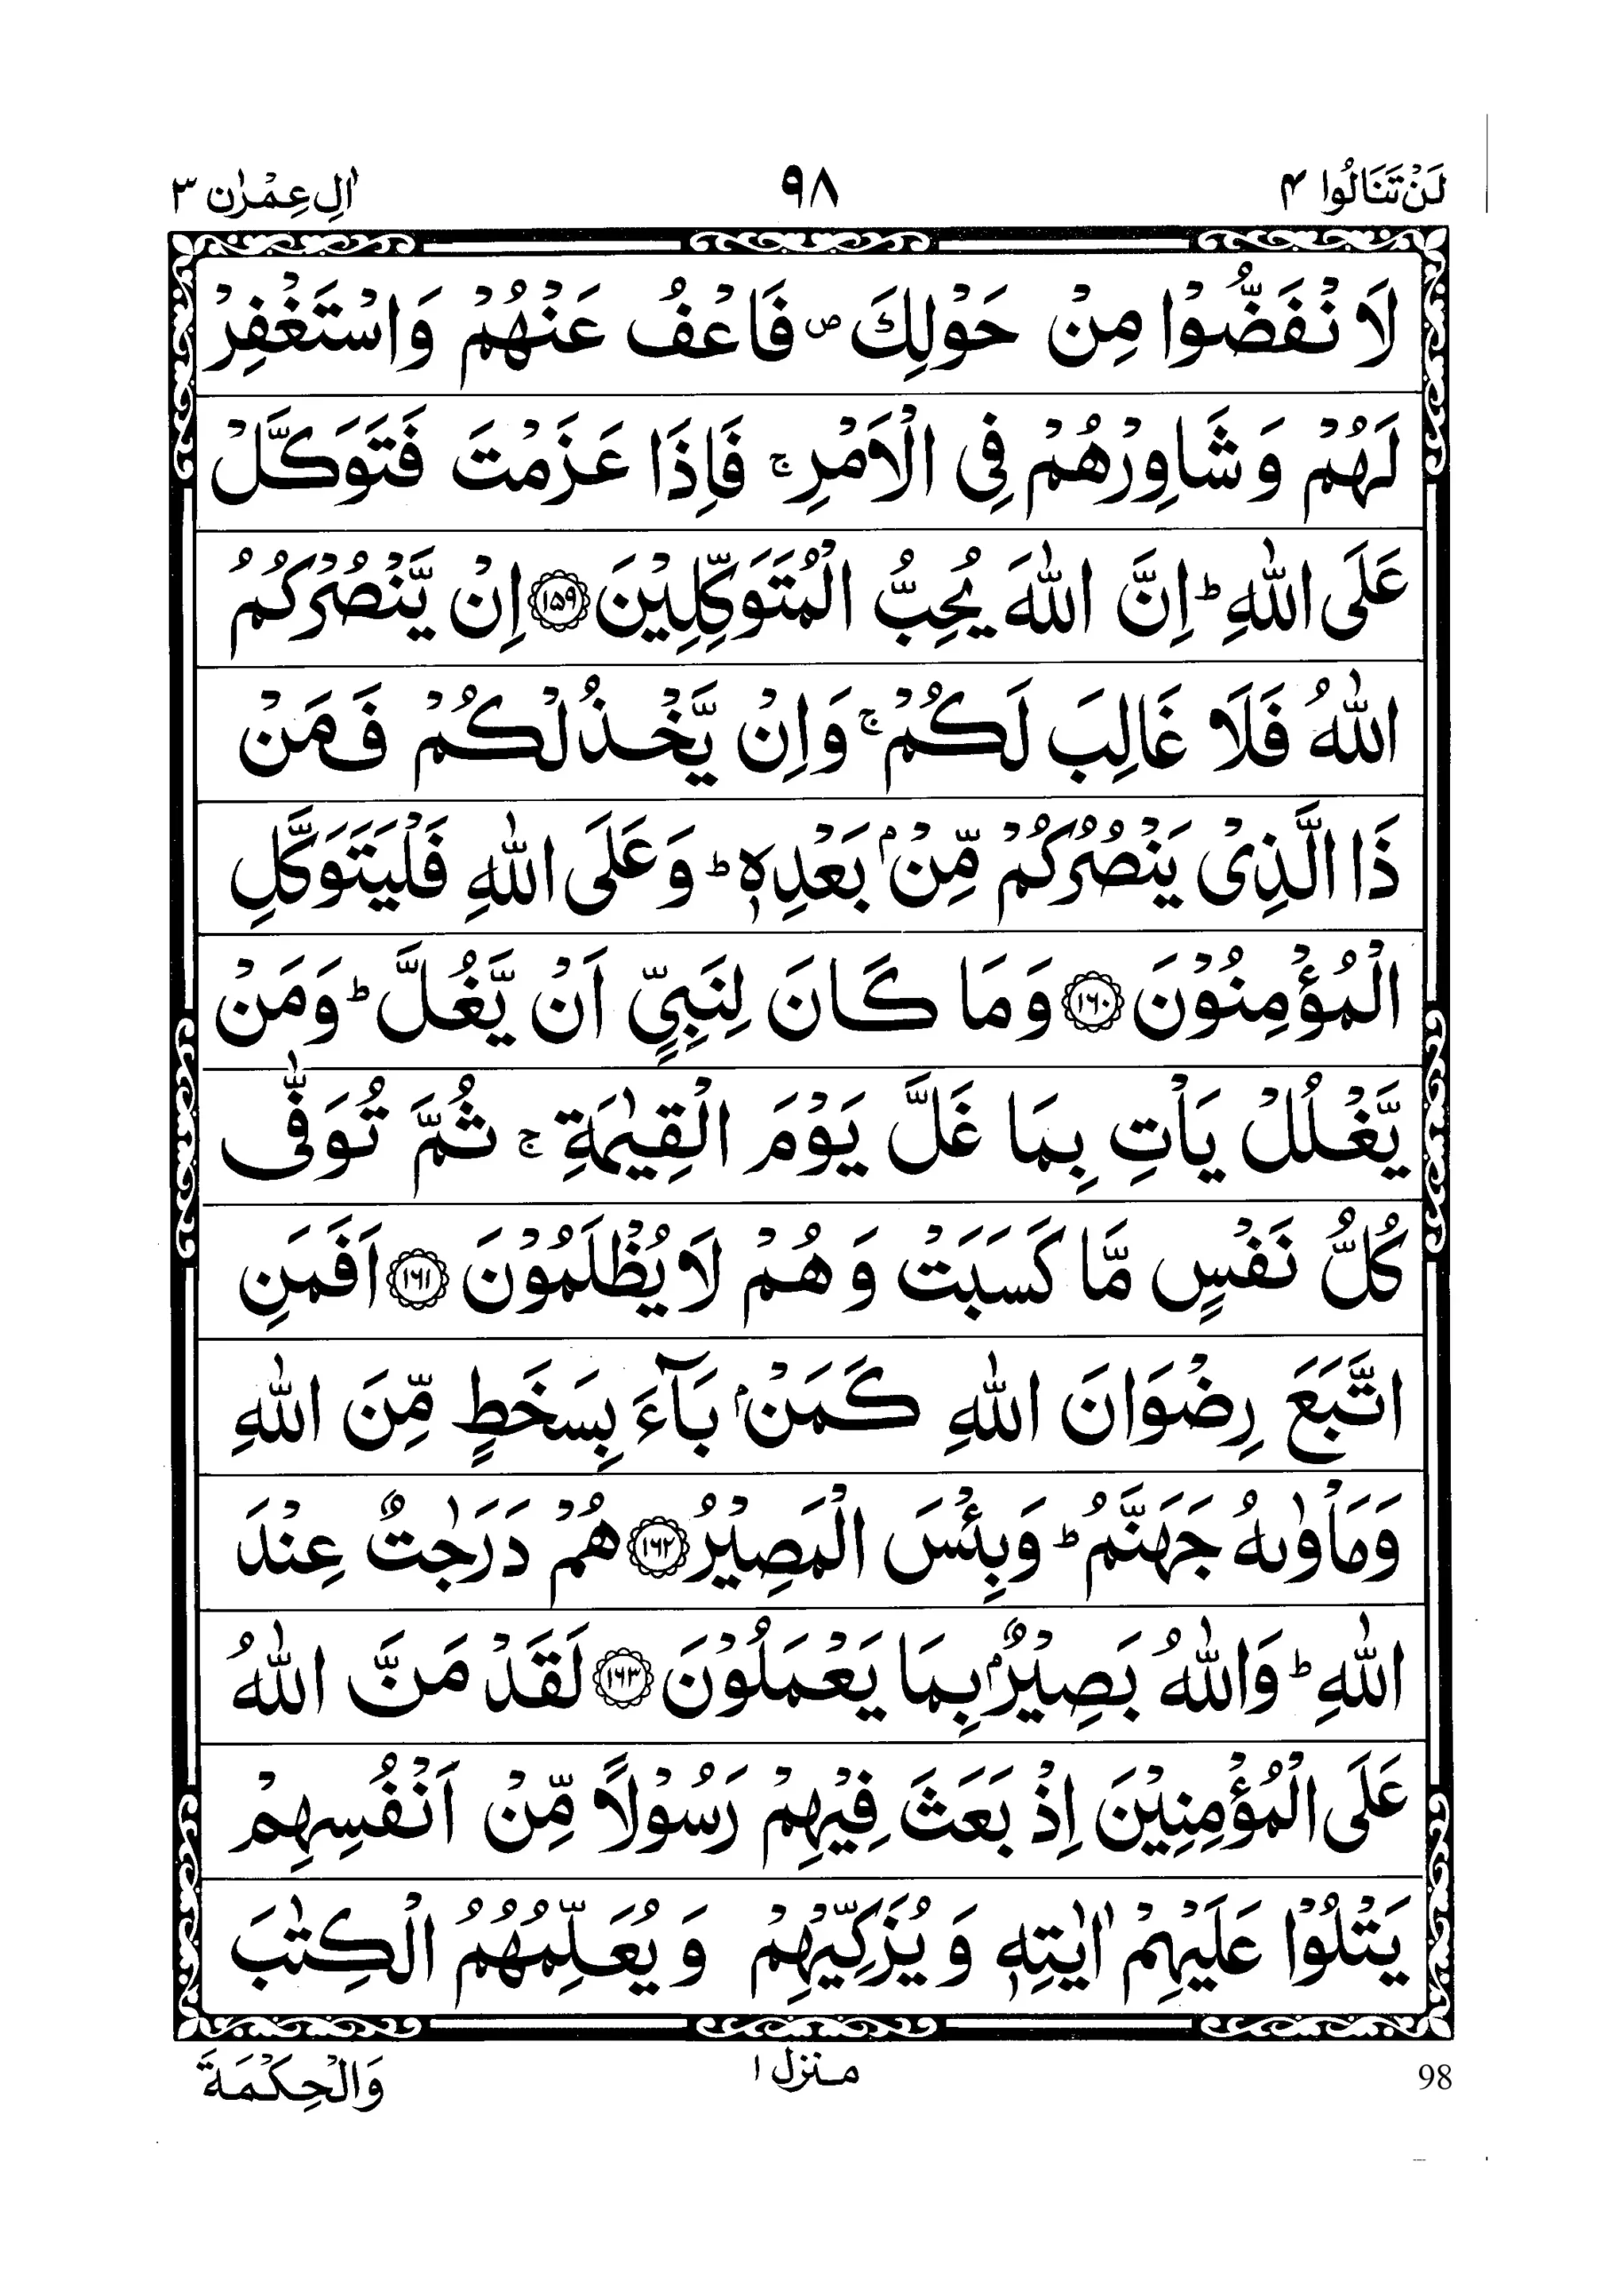 لَنْ تَنَالُوا ۴ ۹۸ اٰلِ عِمْرٰن ۳
لَا نْفَضُّوْا مِنْ حَوْلِكَ ۖ فَاعْفُ عَنْهُمْ وَاسْتَغْفِرْ
لَهُمْ وَشَاوِرْهُمْ فِى الْاَمْرِ ۚ فَاِذَا عَزَمْتَ فَتَوَكَّلْ
عَلَى اللّٰهِ ؕ اِنَّ اللّٰهَ يُحِبُّ الْمُتَوَكِّلِيْنَ ۝۱۵۹ اِنْ يَّنْصُرْكُمُ
اللّٰهُ فَلَا غَالِبَ لَكُمْ ۚ وَاِنْ يَّخْذُلْكُمْ فَمَنْ
ذَا الَّذِىْ يَنْصُرُكُمْ مِّنْۢ بَعْدِهٖ ؕ وَعَلَى اللّٰهِ فَلْيَتَوَكَّلِ
الْمُؤْمِنُوْنَ ۝۱۶۰ وَمَا كَانَ لِنَبِىٍّ اَنْ يَّغُلَّ ؕ وَمَنْ
يَّغْلُلْ يَاْتِ بِمَا غَلَّ يَوْمَ الْقِيٰمَةِ ۚ ثُمَّ تُوَفّٰى
كُلُّ نَفْسٍ مَّا كَسَبَتْ وَهُمْ لَا يُظْلَمُوْنَ ۝۱۶۱ اَفَمَنِ
اتَّبَعَ رِضْوَانَ اللّٰهِ كَمَنْۢ بَآءَ بِسَخَطٍ مِّنَ اللّٰهِ
وَمَاْوٰىهُ جَهَنَّمُ ؕ وَبِئْسَ الْمَصِيْرُ ۝۱۶۲ هُمْ دَرَجٰتٌ عِنْدَ
اللّٰهِ ؕ وَاللّٰهُ بَصِيْرٌۢ بِمَا يَعْمَلُوْنَ ۝۱۶۳ لَقَدْ مَنَّ اللّٰهُ
عَلَى الْمُؤْمِنِيْنَ اِذْ بَعَثَ فِيْهِمْ رَسُوْلًا مِّنْ اَنْفُسِهِمْ
يَتْلُوْا عَلَيْهِمْ اٰيٰتِهٖ وَيُزَكِّيْهِمْ وَيُعَلِّمُهُمُ الْكِتٰبَ
98 منزل ۱ وَالْحِكْمَةَ